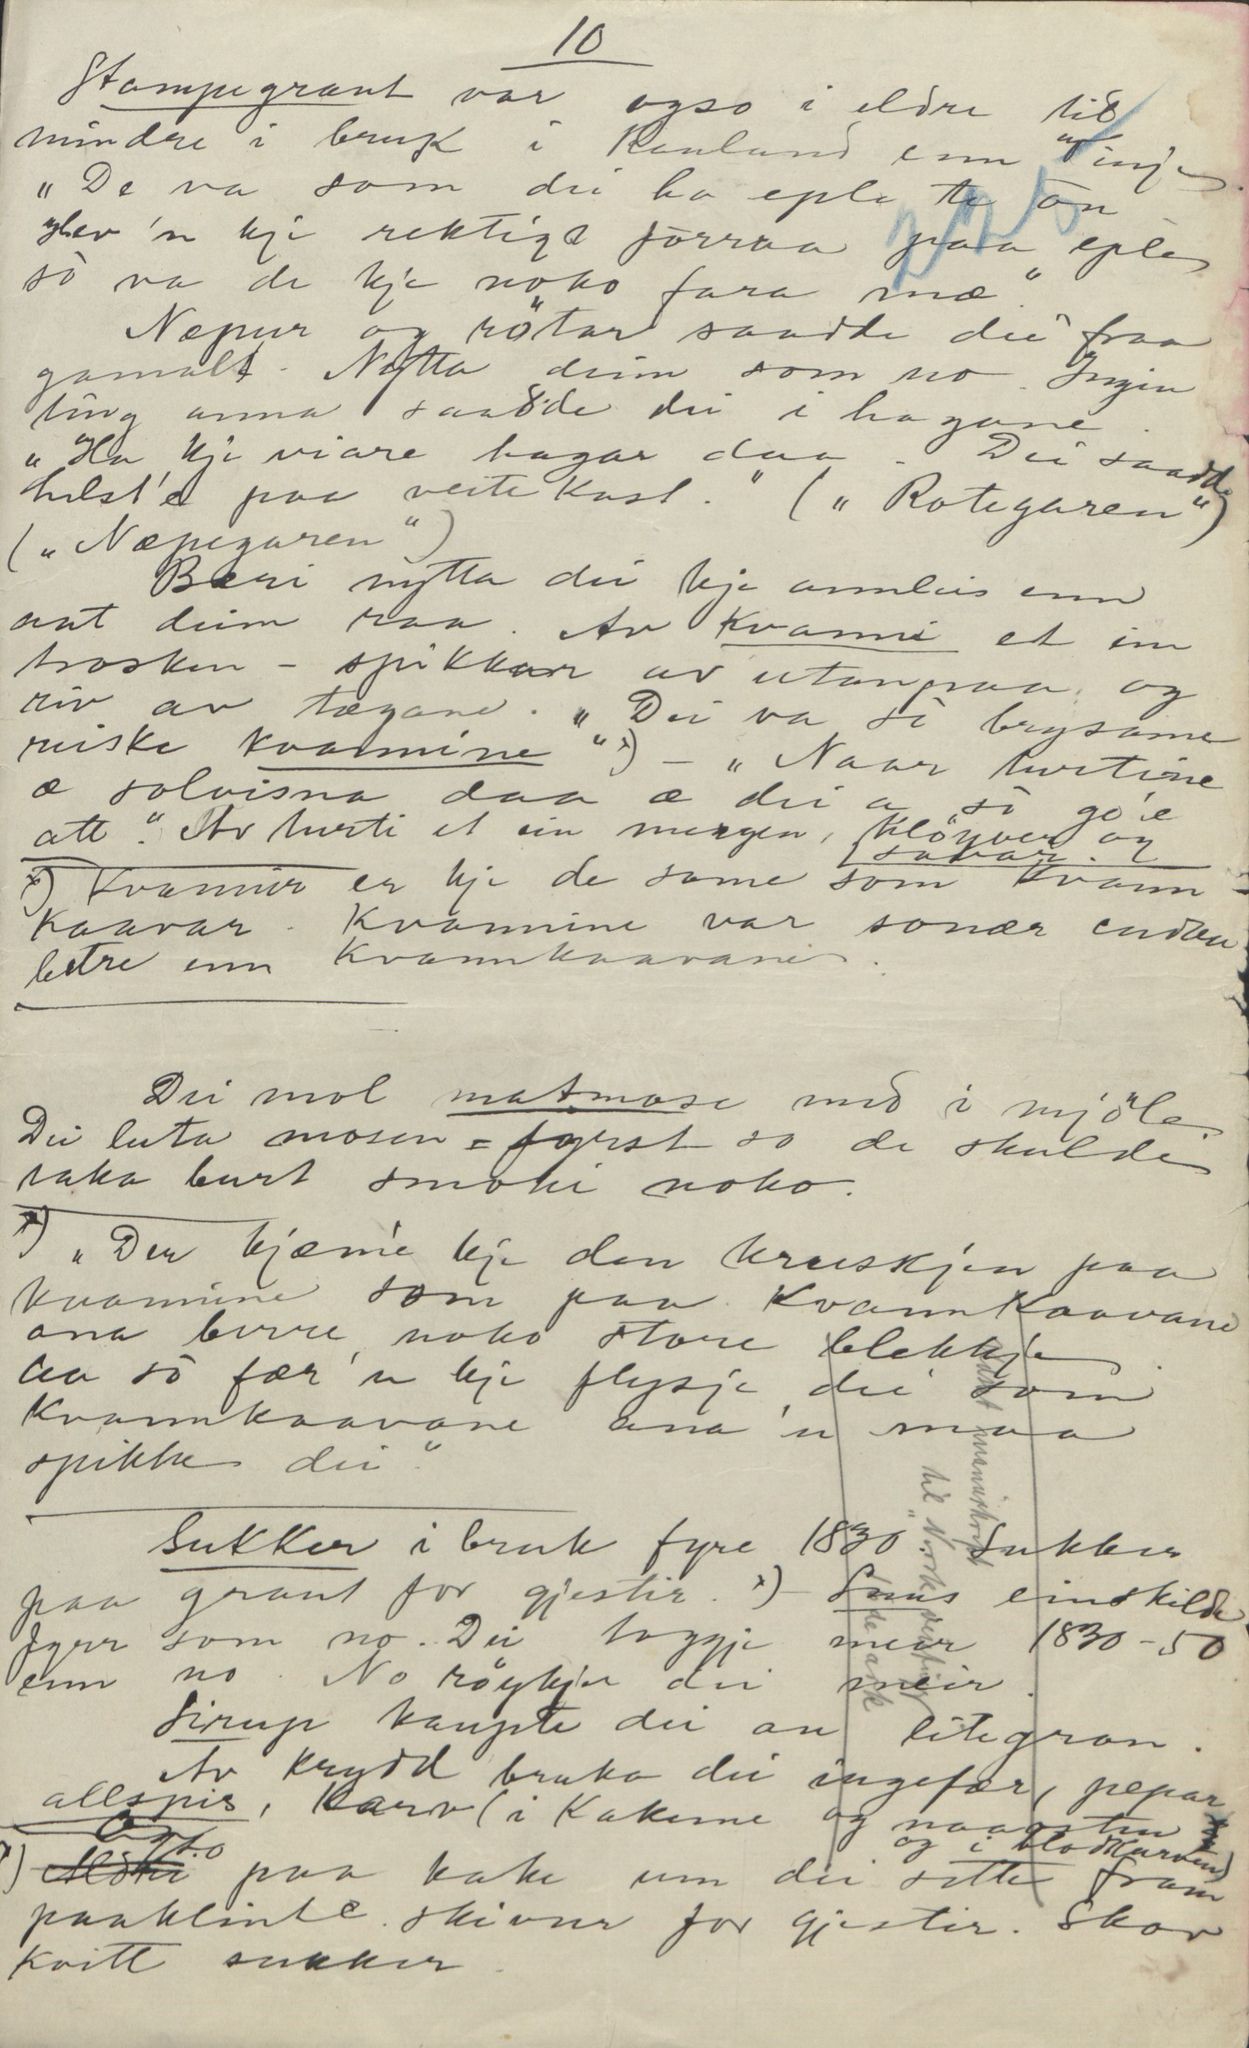 10
Stampegraut var ogso i eldre tid
mindre i bruk i Rauland enn i Vinje.
„De va som dei ha eple te ån
blev 'n kje rektigt forraa paa eple
så va de kje noko fara mæ."
Næpur og røtar saadde dei fraa
gamalt. Nytta deim som no. Ingin
ting anna saadde dei i hagane.
„Ha kje viare hagar daa. Dei saadde
helst'e paa veitekast." („Rotegaren")
(„Næpegaren")
Beri nytta dei kje annleis enn
aat deim raa. Av kvanni et ein
trosken - spikkar av utanpaa og
riv av tægane. „Dei va så brysame
reiske kvannine" x) - „Naar turtine
æ solvisna daa æ dei a så go'e
att". Av turti et ein mergen, kløyver og
savar.
x) Kvannir er kje de same som kvann-
kaavar. Kvannine var sonær endaa
betre enn kvannkaavane.
Dei mol matmose med i mjøle.
Dei luta mosen fyrst so de skulde
taka burt smaki noko.
x) „Der kjæm'e kje den truskjen paa
kvannine som paa kvannkaavane
ana berre noko store blekkje.
Aa så fær 'n kje flysje dei som
kvannkaavane ana 'n maa
spikke dei".
Sukker i bruk fyre 1830. Sukker
paa graut for gjestir. x) - Snus einskilde
fyrr som no. Dei toggje meir 1830-50
enn no. No røykjer dei meir.
Sirup kaupte dei an litegran.
Av krydd bruka dei ingefær, pepar
allspis, karv (i kakerne og naagaaten
og i blodkurven)
x) Ogso paa kake um dei sette fram
paaklinte skivur for gjestir. Skov
kvitt sukker.